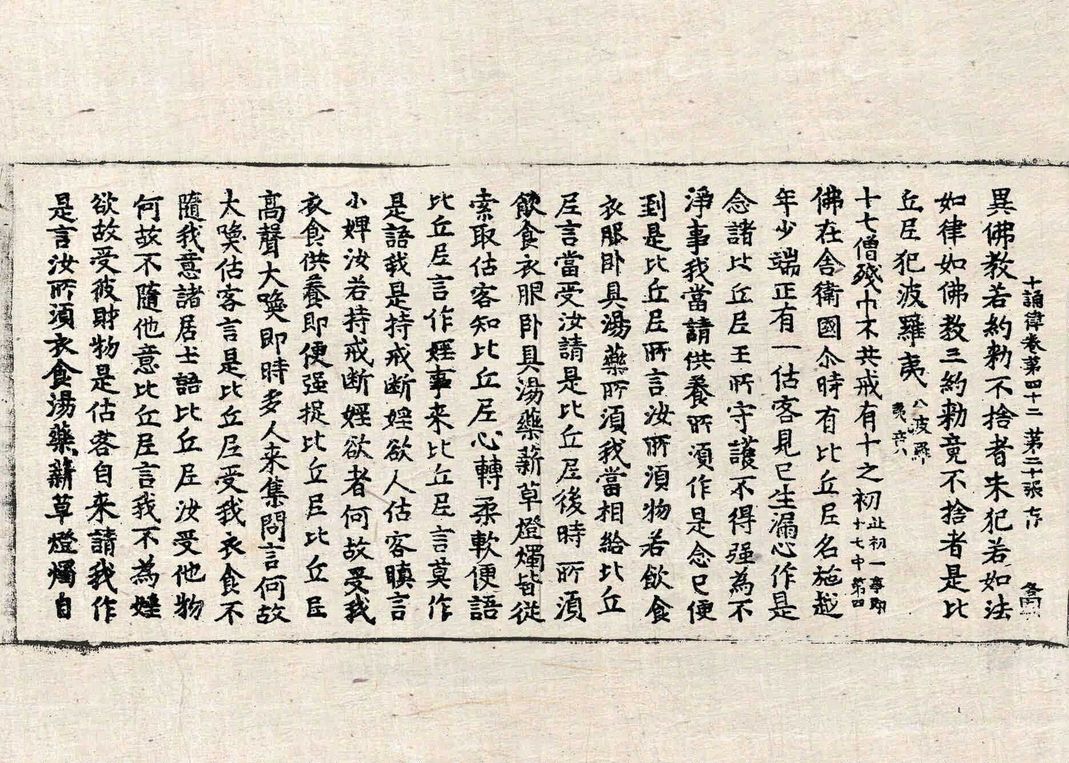 十誦律卷第四十二 第二十張
異佛教若約勅不捨者未犯若如法
如律如佛教三約勅竟不捨者是比
丘尼犯波羅夷
八波羅
夷竟
十七僧殘中不共戒有十之初
此初一事即
十七中第四
佛在舍衛國尒時有比丘尼名施越
年少端正有一估客見已生漏心作是
念諸比丘尼王所守護不得强為不
淨事我當請供養所湏作是念已便
到是比丘尼所言汝所湏物若飲食
衣服卧具湯藥所湏我當相給比丘
尼言當受汝請是比丘尼後時所湏
飲食衣服卧具湯藥薪草燈燭皆從
索取估客知比丘尼心轉柔軟便語
比丘尼言作婬事来比丘尼言莫作
是語我是持戒断婬欲人估客瞋言
小婢汝若持戒断婬欲者何故受我
衣食供養即便强捉比丘尼比丘尼
髙聲大喚即時多人来集問言何故
大喚估客言是比丘尼受我衣食不
隨我意諸居士語比丘尼汝受他物
何故不隨他意比丘尼言我不為婬
欲故受彼財物是估客自来請我作
是言汝所湏衣食湯藥薪草燈燭自